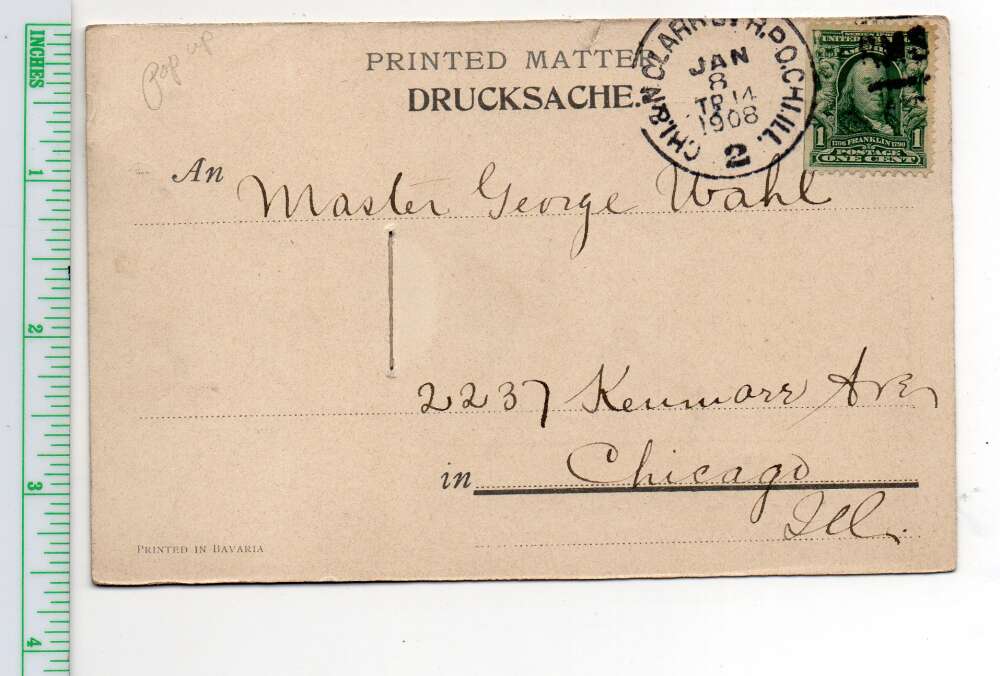 INCHES
1
2
3
4
pop up
PRINTED MATTER
DRUCKSACHE.
CHI.&N.CLARK ST. R.P.O. CHI.ILL.
JAN
8
TR 14
1908
2
UNITED STATES OF AMERICA
1 1706 FRANKLIN 1790 1
POSTAGE
ONE CENT
An Master George Wahl
2237 Kenmore Ave,
in Chicago
Ill.
PRINTED IN BAVARIA